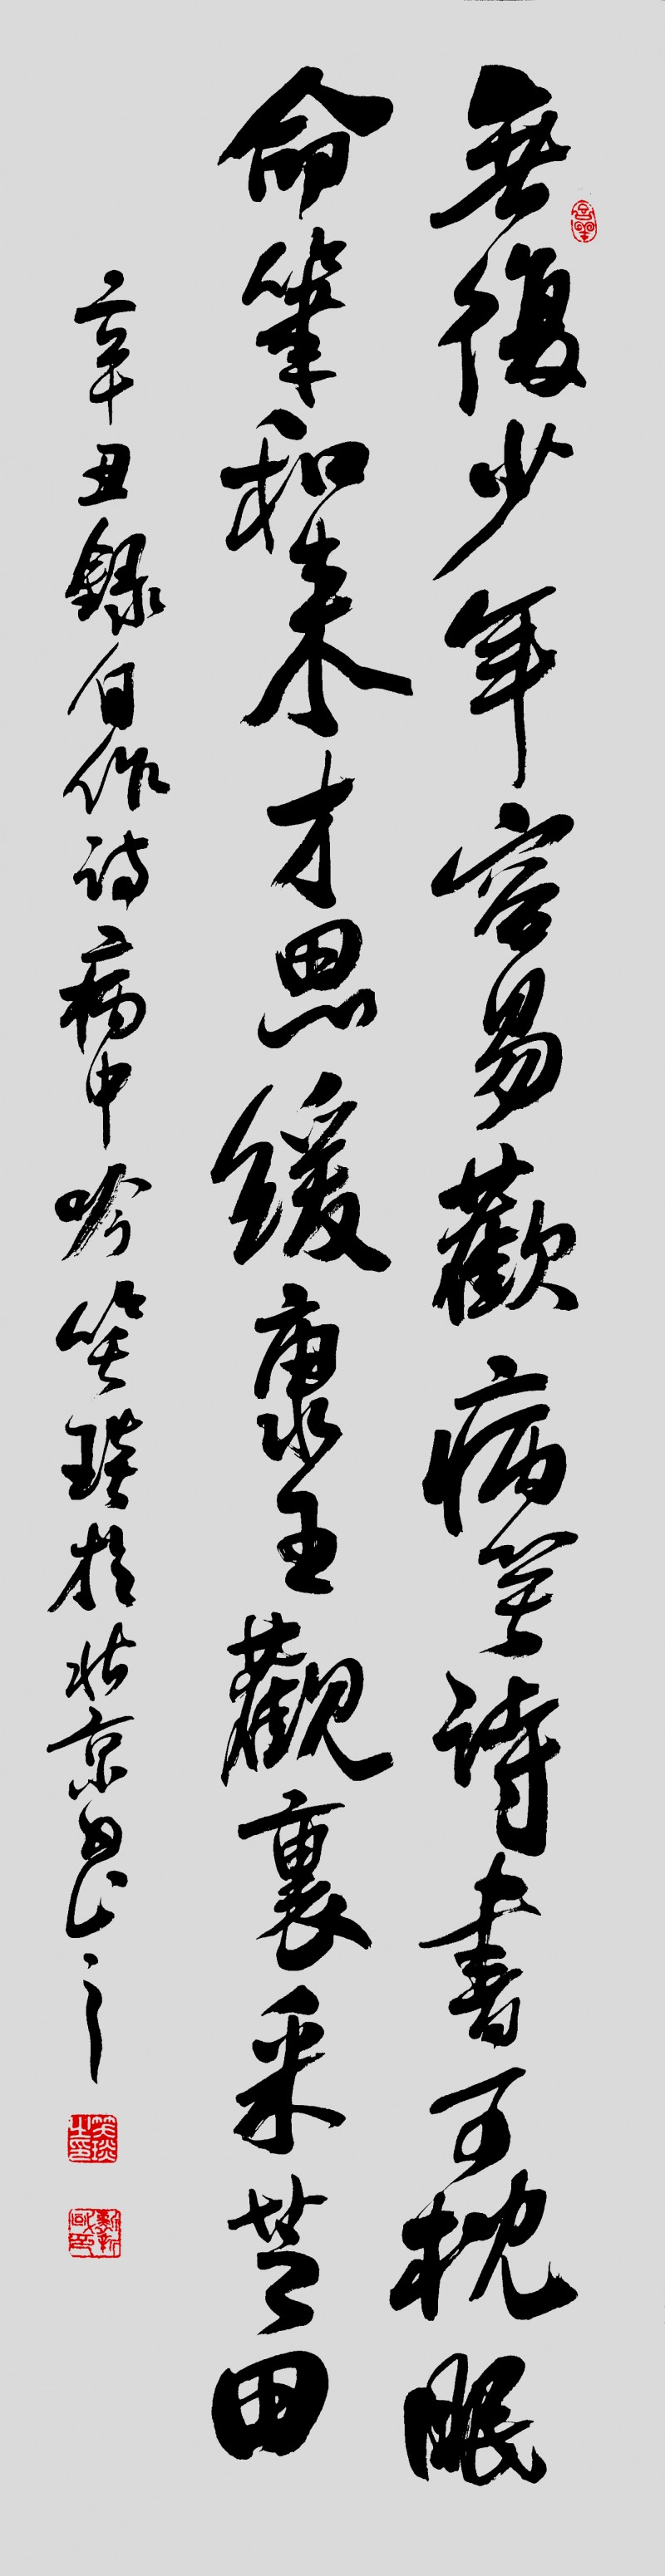 無復少年容易歡病詩書可枕眠
命筆和來才思緩康王觀裏采芝田
辛丑錄自作诗病中吟笑琰於北京
笑琰之印